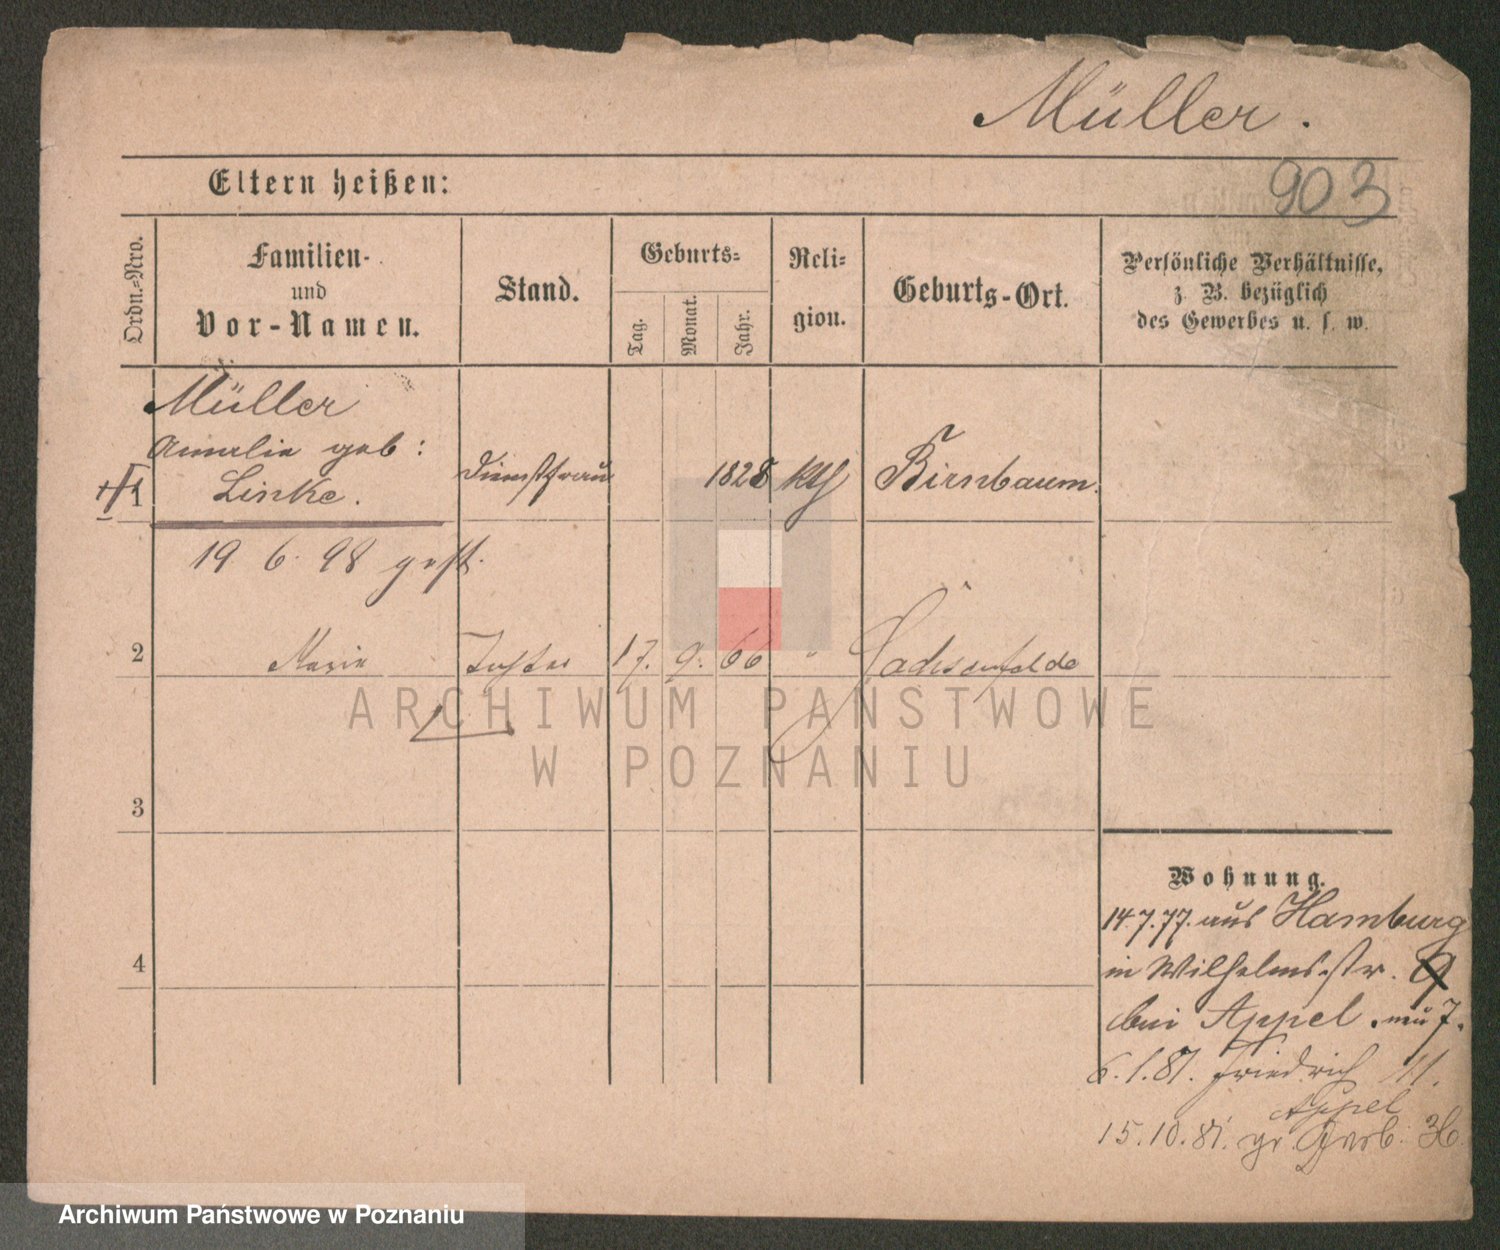 Müller.
903
Eltern heißen:
Ordn.-Nro.
Familien-
und
Vor-Namen.
Stand.
Geburts-
Tag.
Monat.
Jahr.
Reli-
gion.
Geburts-Ort.
Persönliche Verhältnisse,
z. B. bezüglich
des Gewerbes u. s. w.
Müller
Amalie geb:
1 Linke. Dienstfrau 1828 kth Birnbaum.
19 6. 98 gest.
2 Marie Tochter 17. 9. 66 " Sachsenfelde
3
4
Wohnung.
14.7.77. aus Hamburg
in Wilhelmsstr. 9
bei Appel. neu 7.
6.1.81. Friedrich 11.
Appel
15.10.81. gr. Gerb. 36.
ARCHIWUM PAŃSTWOWE
W POZNANIU
Archiwum Państwowe w Poznaniu